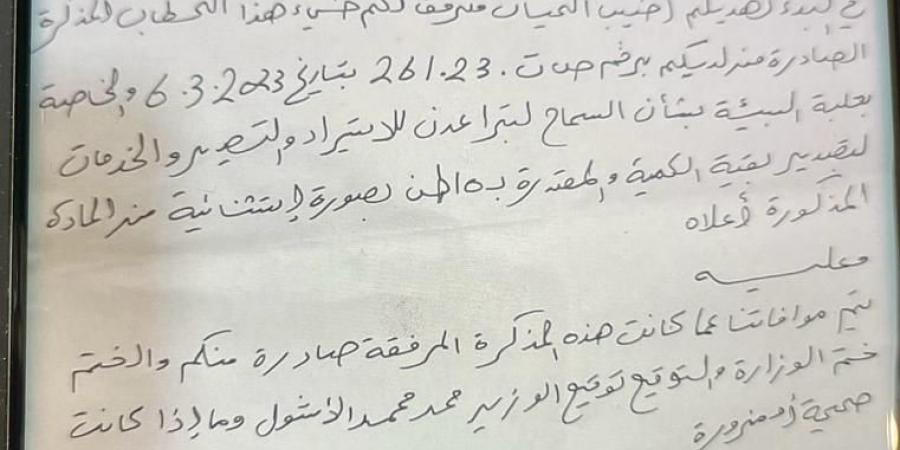 في البدء نهديكم أطيب التحيات مرفق لكم طيء هذا الخطاب المذكرة
الصادرة من لديكم برقم ص ت . 261.23 بتاريخ 6.3.2023 والخاصة
بعلبة البيئة بشأن السماح لبترا عدن للاستيراد والتصدير والخدمات
لتصدير بقية الكمية والمقدرة بـ ه اطن بصورة إستثنائية من المادة
المذكورة أعلاه
وعليه
يتم موافاتنا عما كانت هذه المذكرة المرفقة صادرة منكم والختم
ختم الوزارة والتوقيع توقيع الوزير محمد محمد الأشول وما إذا كانت
صحيحة أم مزورة